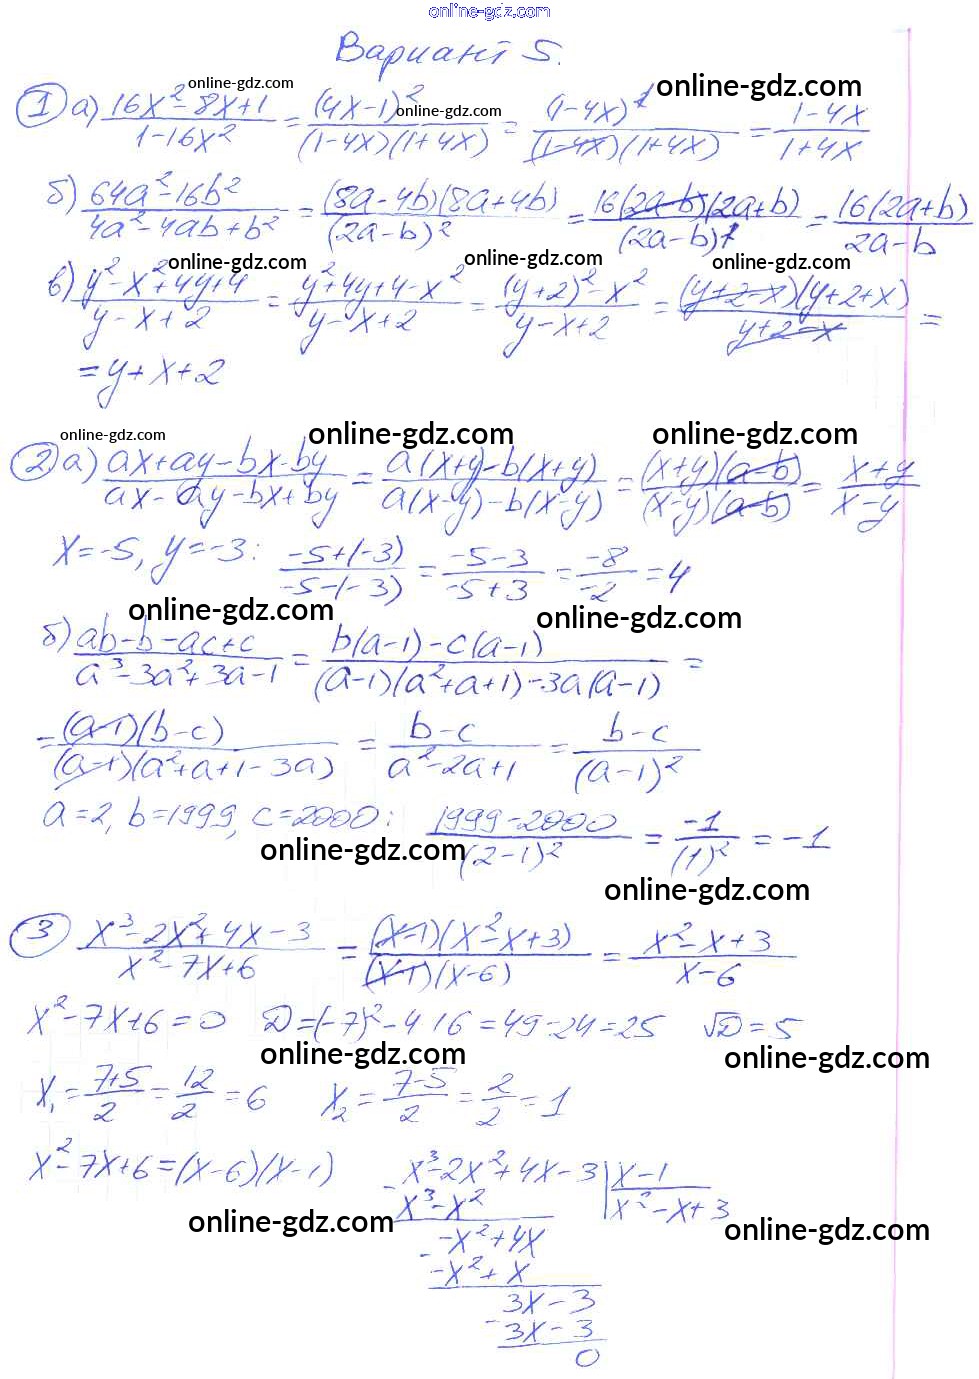 online-gdz.com
Вариант 5.
online-gdz.com online-gdz.com online-gdz.com
① а) (16x² - 8x + 1)/(1 - 16x²) = (4x - 1)²/((1 - 4x)(1 + 4x)) = (1 - 4x)²/((1 - 4x)(1 + 4x)) = (1 - 4x)/(1 + 4x)
б) (64a² - 16b²)/(4a² - 4ab + b²) = ((8a - 4b)(8a + 4b))/(2a - b)² = (16(2a - b)(2a + b))/(2a - b)² = (16(2a + b))/(2a - b)
online-gdz.com online-gdz.com online-gdz.com
в) (y² - x² + 4y + 4)/(y - x + 2) = (y² + 4y + 4 - x²)/(y - x + 2) = ((y + 2)² - x²)/(y - x + 2) = ((y + 2 - x)(y + 2 + x))/(y + 2 - x) =
= y + x + 2
online-gdz.com online-gdz.com online-gdz.com
② а) (ax + ay - bx - by)/(ax - ay - bx + by) = (a(x + y) - b(x + y))/(a(x - y) - b(x - y)) = ((x + y)(a - b))/((x - y)(a - b)) = (x + y)/(x - y)
x = -5, y = -3: (-5 + (-3))/(-5 - (-3)) = (-5 - 3)/(-5 + 3) = (-8)/(-2) = 4
online-gdz.com online-gdz.com
б) (ab - b - ac + c)/(a³ - 3a² + 3a - 1) = (b(a - 1) - c(a - 1))/((a - 1)(a² + a + 1) - 3a(a - 1)) =
= ((a - 1)(b - c))/((a - 1)(a² + a + 1 - 3a)) = (b - c)/(a² - 2a + 1) = (b - c)/(a - 1)²
a = 2, b = 1999, c = 2000: (1999 - 2000)/(2 - 1)² = (-1)/(1)² = -1
online-gdz.com online-gdz.com
③ (x³ - 2x² + 4x - 3)/(x² - 7x + 6) = ((x - 1)(x² - x + 3))/((x - 1)(x - 6)) = (x² - x + 3)/(x - 6)
x² - 7x + 6 = 0 D = (-7)² - 4·1·6 = 49 - 24 = 25 √D = 5
online-gdz.com online-gdz.com
x₁ = (7 + 5)/2 = 12/2 = 6 x₂ = (7 - 5)/2 = 2/2 = 1
x² - 7x + 6 = (x - 6)(x - 1) - x³ - 2x² + 4x - 3 | x - 1
x³ - x² | x² - x + 3
online-gdz.com online-gdz.com
- -x² + 4x
-x² + x
3x - 3
- 3x - 3
0